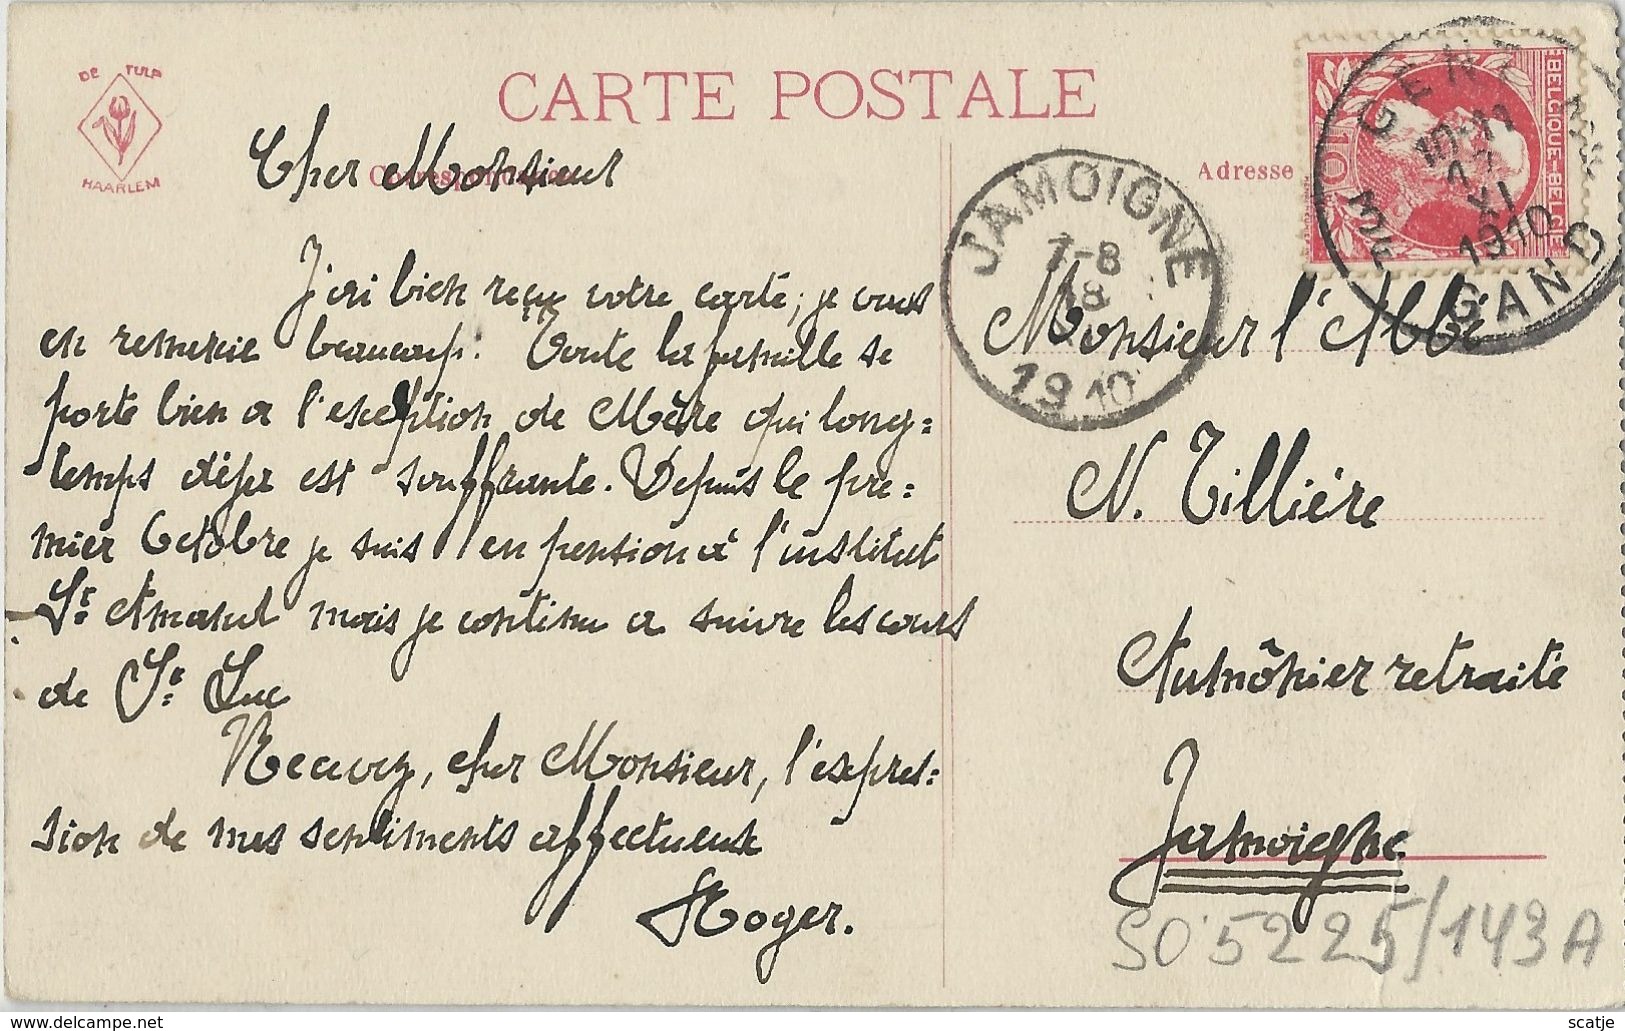 DE TULP
HAARLEM
CARTE POSTALE
Correspondance
Adresse
BELGIQUE-BELGIË
10
GENT
GAND
10-11
XI
1910
JAMOIGNE
7-8
18
1910
Cher Monsieur
J'ai bien reçu votre carte, je vous
en remercie beaucoup. Toute la famille se
porte bien a l'exception de Mère qui long=
temps déja est souffrante. Depuis le pre=
mier Octobre je suis en pension à l'institut
St Amand mais je continu a suivre les cours
de St Luc
Recevez, cher Monsieur, l'expres=
sion de mes sentiments affectueux
Roger.
Monsieur l'Abbé
N. Tillière
Aumônier retraité
Jamoigne
SO 5225/143A
delcampe.net
scatje